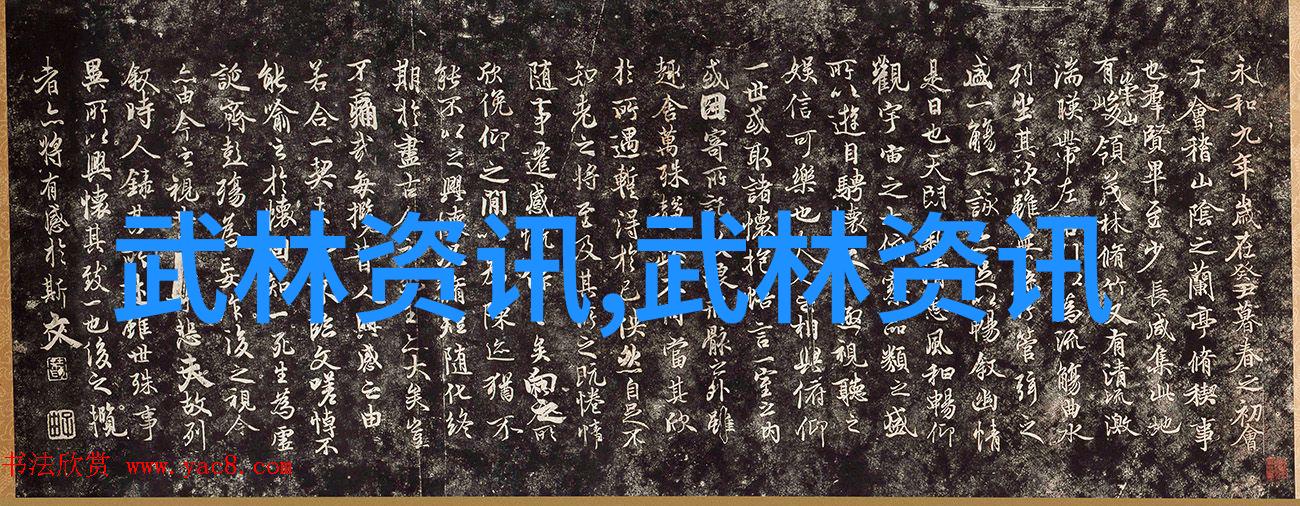 永和九年歲在癸丑暮春之初會
于會稽山陰之蘭亭脩稧事
也羣賢畢至少長咸集此地
有崇山峻領茂林脩竹又有清流激
湍暎帶左為流觴曲水
列坐其次雖無管弦之
盛一觴一詠足以暢叙幽情
是日也天朗惠風和暢仰
觀宇宙之品類之盛
所以遊目騁懷極視聽之
娛信可樂也夫人之相與俯仰
一世或取諸懷抱悟言一室之內
或因寄所形骸之外雖
趣舍萬殊當其欣
於所遇暫得於己怏然自足不
知老之將至及其所之既惓情
隨事遷感慨矣向之所
欣俛仰之閒陳迹猶不
能不以之興懷脩短隨化終
期於盡古大矣豈
不痛哉每攬昔人興感之由
若合一契臨文嗟悼不
能喻之於懷固知一死生為虛
誕齊彭殤為妄作後之視今
亦由今之視悲夫故列
叙時人錄其雖世殊事
異所以興懷其致一也後之攬
者亦將有感於斯文
武林资讯,武林资讯
书法欣赏 www.yac8.com